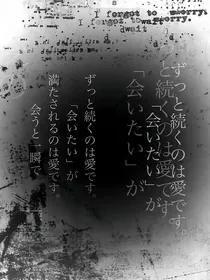 I forgot to worry.
I forgot to worry.
dwait
ずっと続くのは愛です。
と続くのは愛です
「会いたい」が
「会いたい」が
ずっと続くのは愛です。
「会いたい」が
満たされるのは愛です。
会うと一瞬で